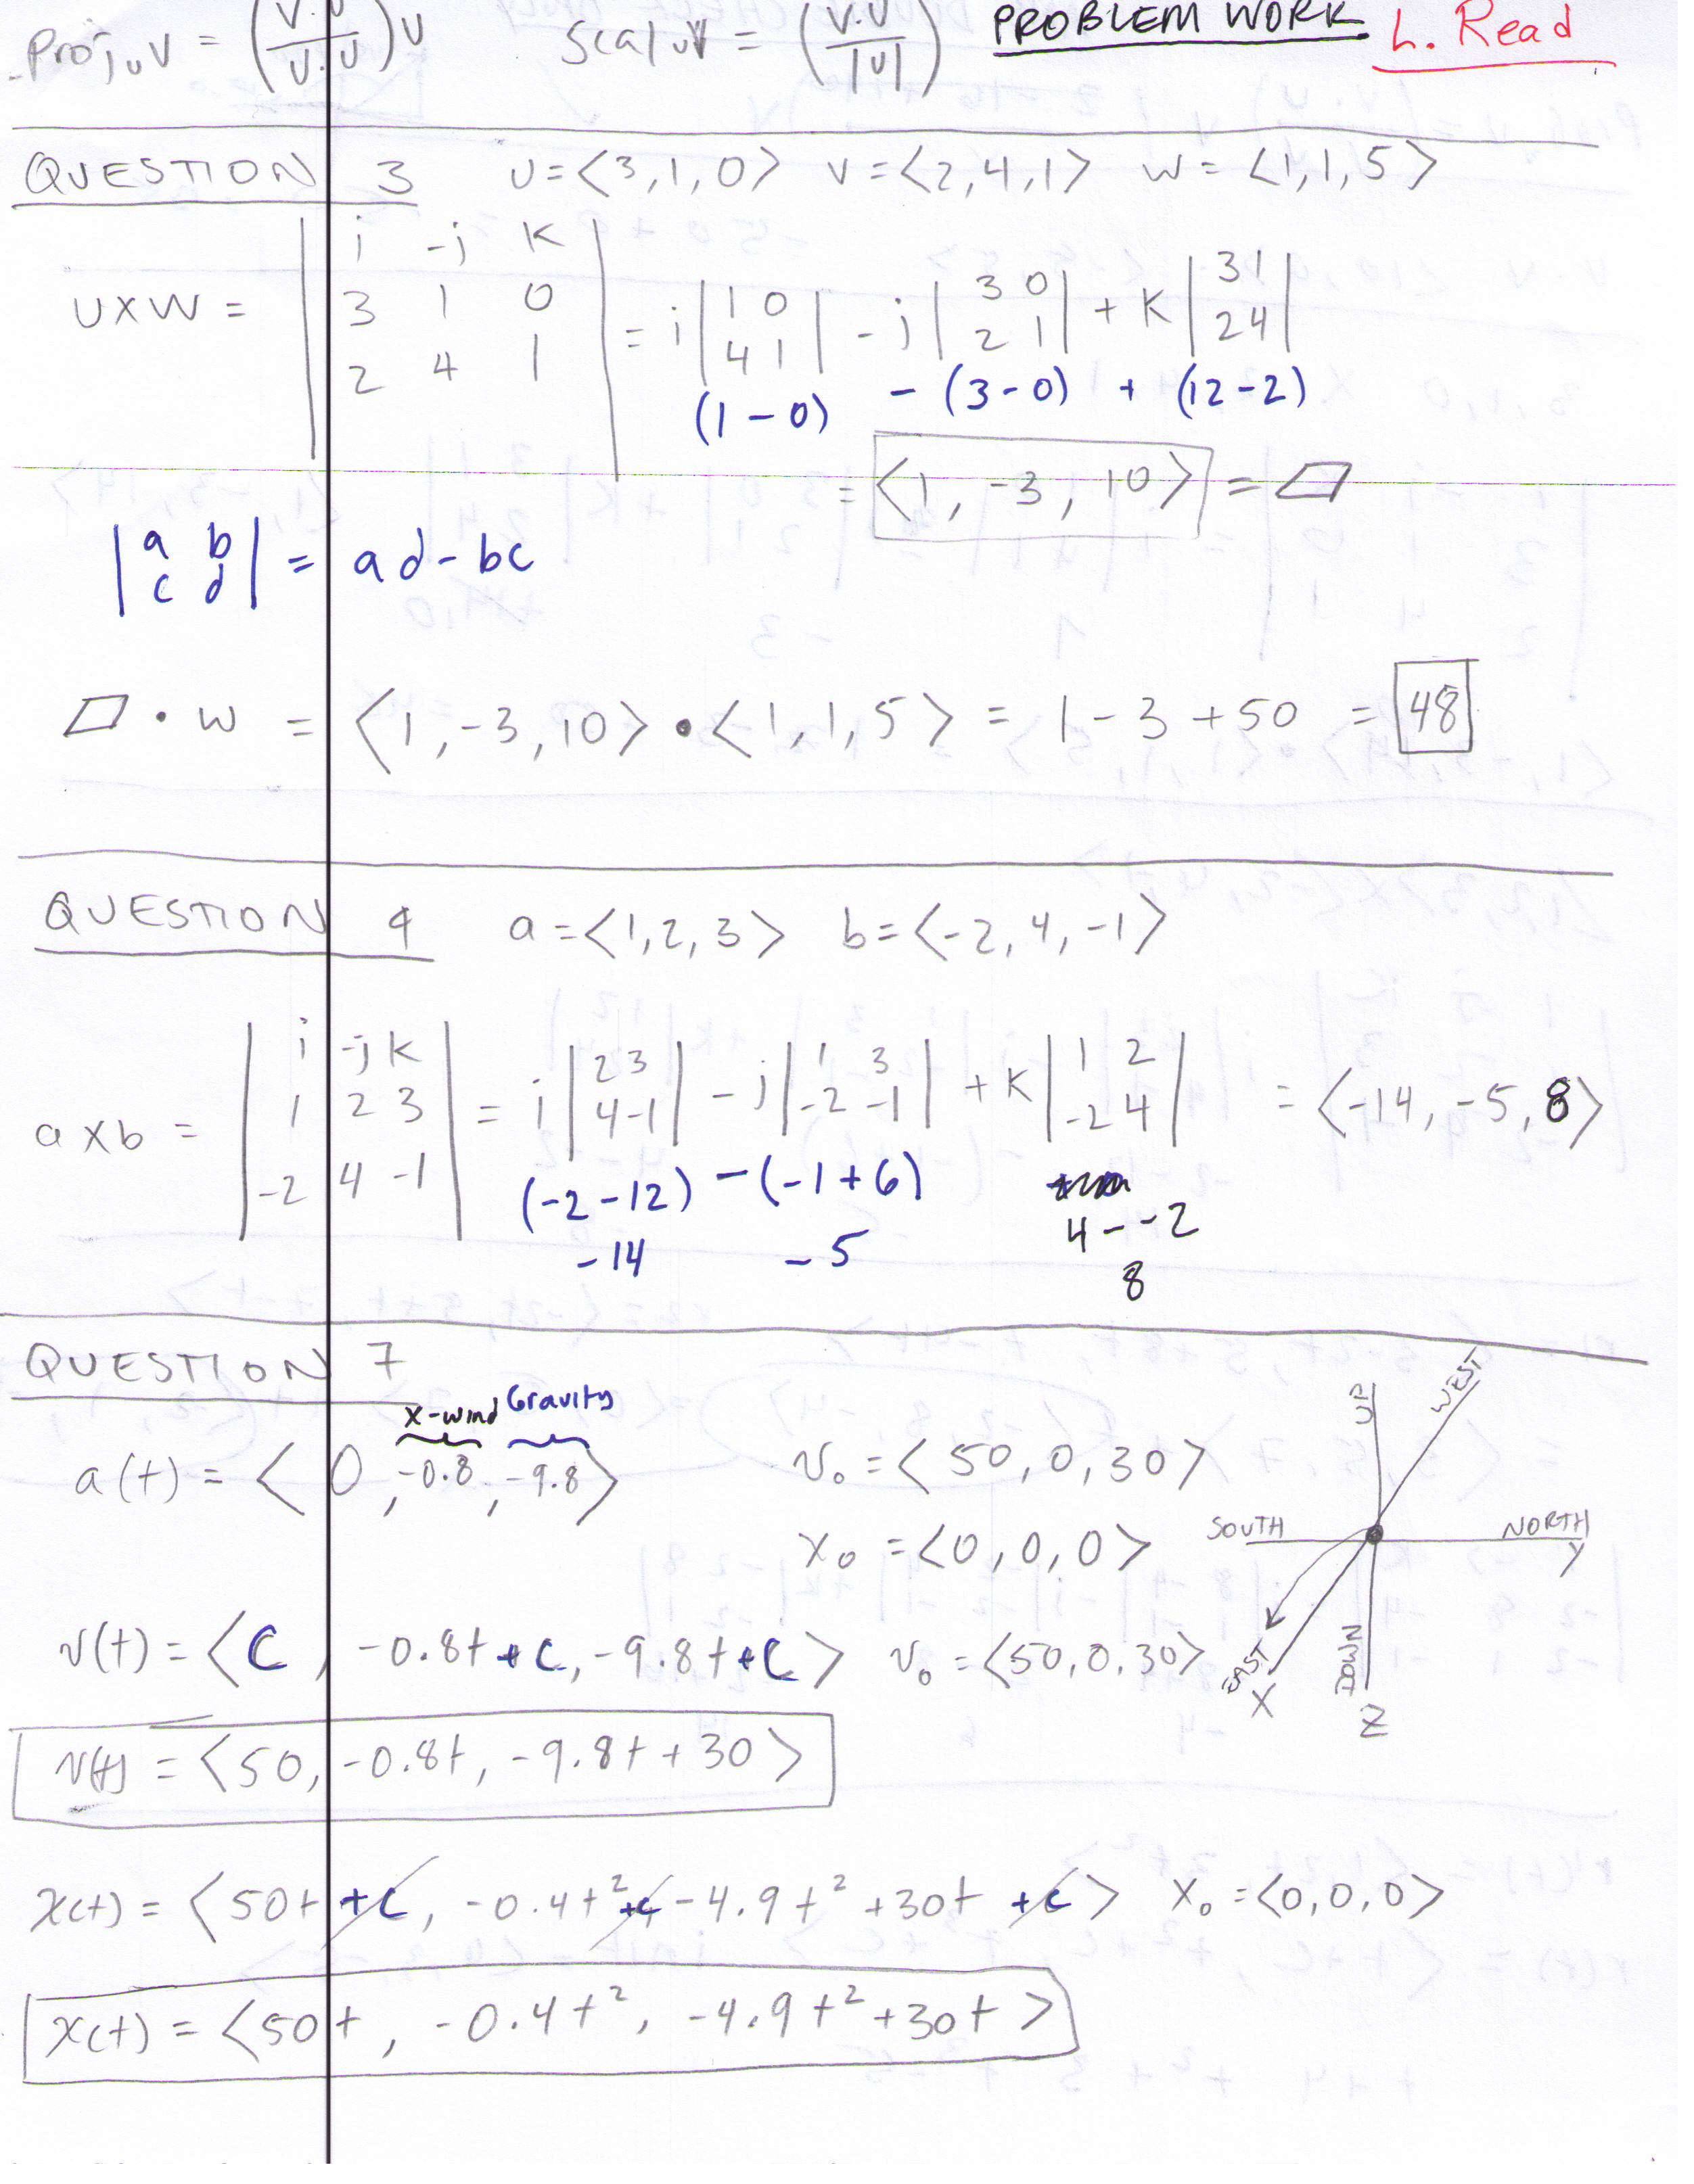 Proj_u V = (V·U / U·U) U   Scal_u V = (V·U / |U|)   PROBLEM WORK   L. Read
QUESTION 3   U=<3,1,0>   V=<2,4,1>   W=<1,1,5>
UXW = | i -j K | 3 1 0 | 2 4 1 | = i |1 0 / 4 1| - j |3 0 / 2 1| + K |3 1 / 2 4|
(1-0) - (3-0) + (12-2)
= <1, -3, 10> = ▱
|a b / c d| = ad-bc
▱ · W = <1,-3,10> • <1,1,5> = 1-3+50 = 48
QUESTION 4   a=<1,2,3>   b=<-2,4,-1>
a x b = | i -j k | 1 2 3 | -2 4 -1 | = i |2 3 / 4 -1| - j |1 3 / -2 -1| + K |1 2 / -2 4| = <-14, -5, 8>
(-2-12) - (-1+6)   4--2
-14   -5   8
QUESTION 7
X-wind Gravity
a(t) = <0, -0.8, -9.8>   v₀ = <50,0,30>
x₀ = <0,0,0>
UP
WEST
SOUTH
NORTH
Y
EAST
X
DOWN
Z
v(t) = <C, -0.8t+C, -9.8t+C>   v₀ = <50,0,30>
v(t) = <50, -0.8t, -9.8t+30>
x(t) = <50t+C, -0.4t²+C -4.9t²+30t+C>   x₀ = <0,0,0>
x(t) = <50t, -0.4t², -4.9t²+30t>